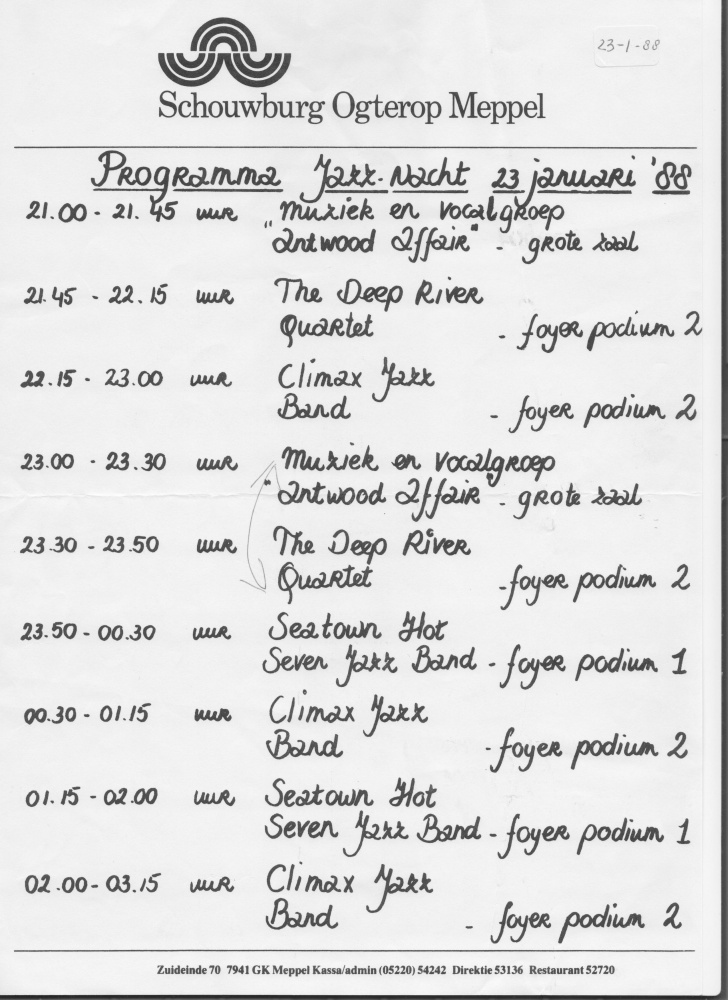 23-1-88
Schouwburg Ogterop Meppel
Programma Jazz-Nacht 23 januari '88
21.00 - 21.45 uur Muziek en vocalgroep
"Antwood Affair" - grote zaal
21.45 - 22.15 uur The Deep River
Quartet - foyer podium 2
22.15 - 23.00 uur Climax Jazz
Band - foyer podium 2
23.00 - 23.30 uur Muziek en vocalgroep
"Antwood Affair" - grote zaal
23.30 - 23.50 uur The Deep River
Quartet - foyer podium 2
23.50 - 00.30 uur Seatown Hot
Seven Jazz Band - foyer podium 1
00.30 - 01.15 uur Climax Jazz
Band - foyer podium 2
01.15 - 02.00 uur Seatown Hot
Seven Jazz Band - foyer podium 1
02.00 - 03.15 uur Climax Jazz
Band - foyer podium 2
Zuideinde 70 7941 GK Meppel Kassa/admin (05220) 54242 Direktie 53136 Restaurant 52720